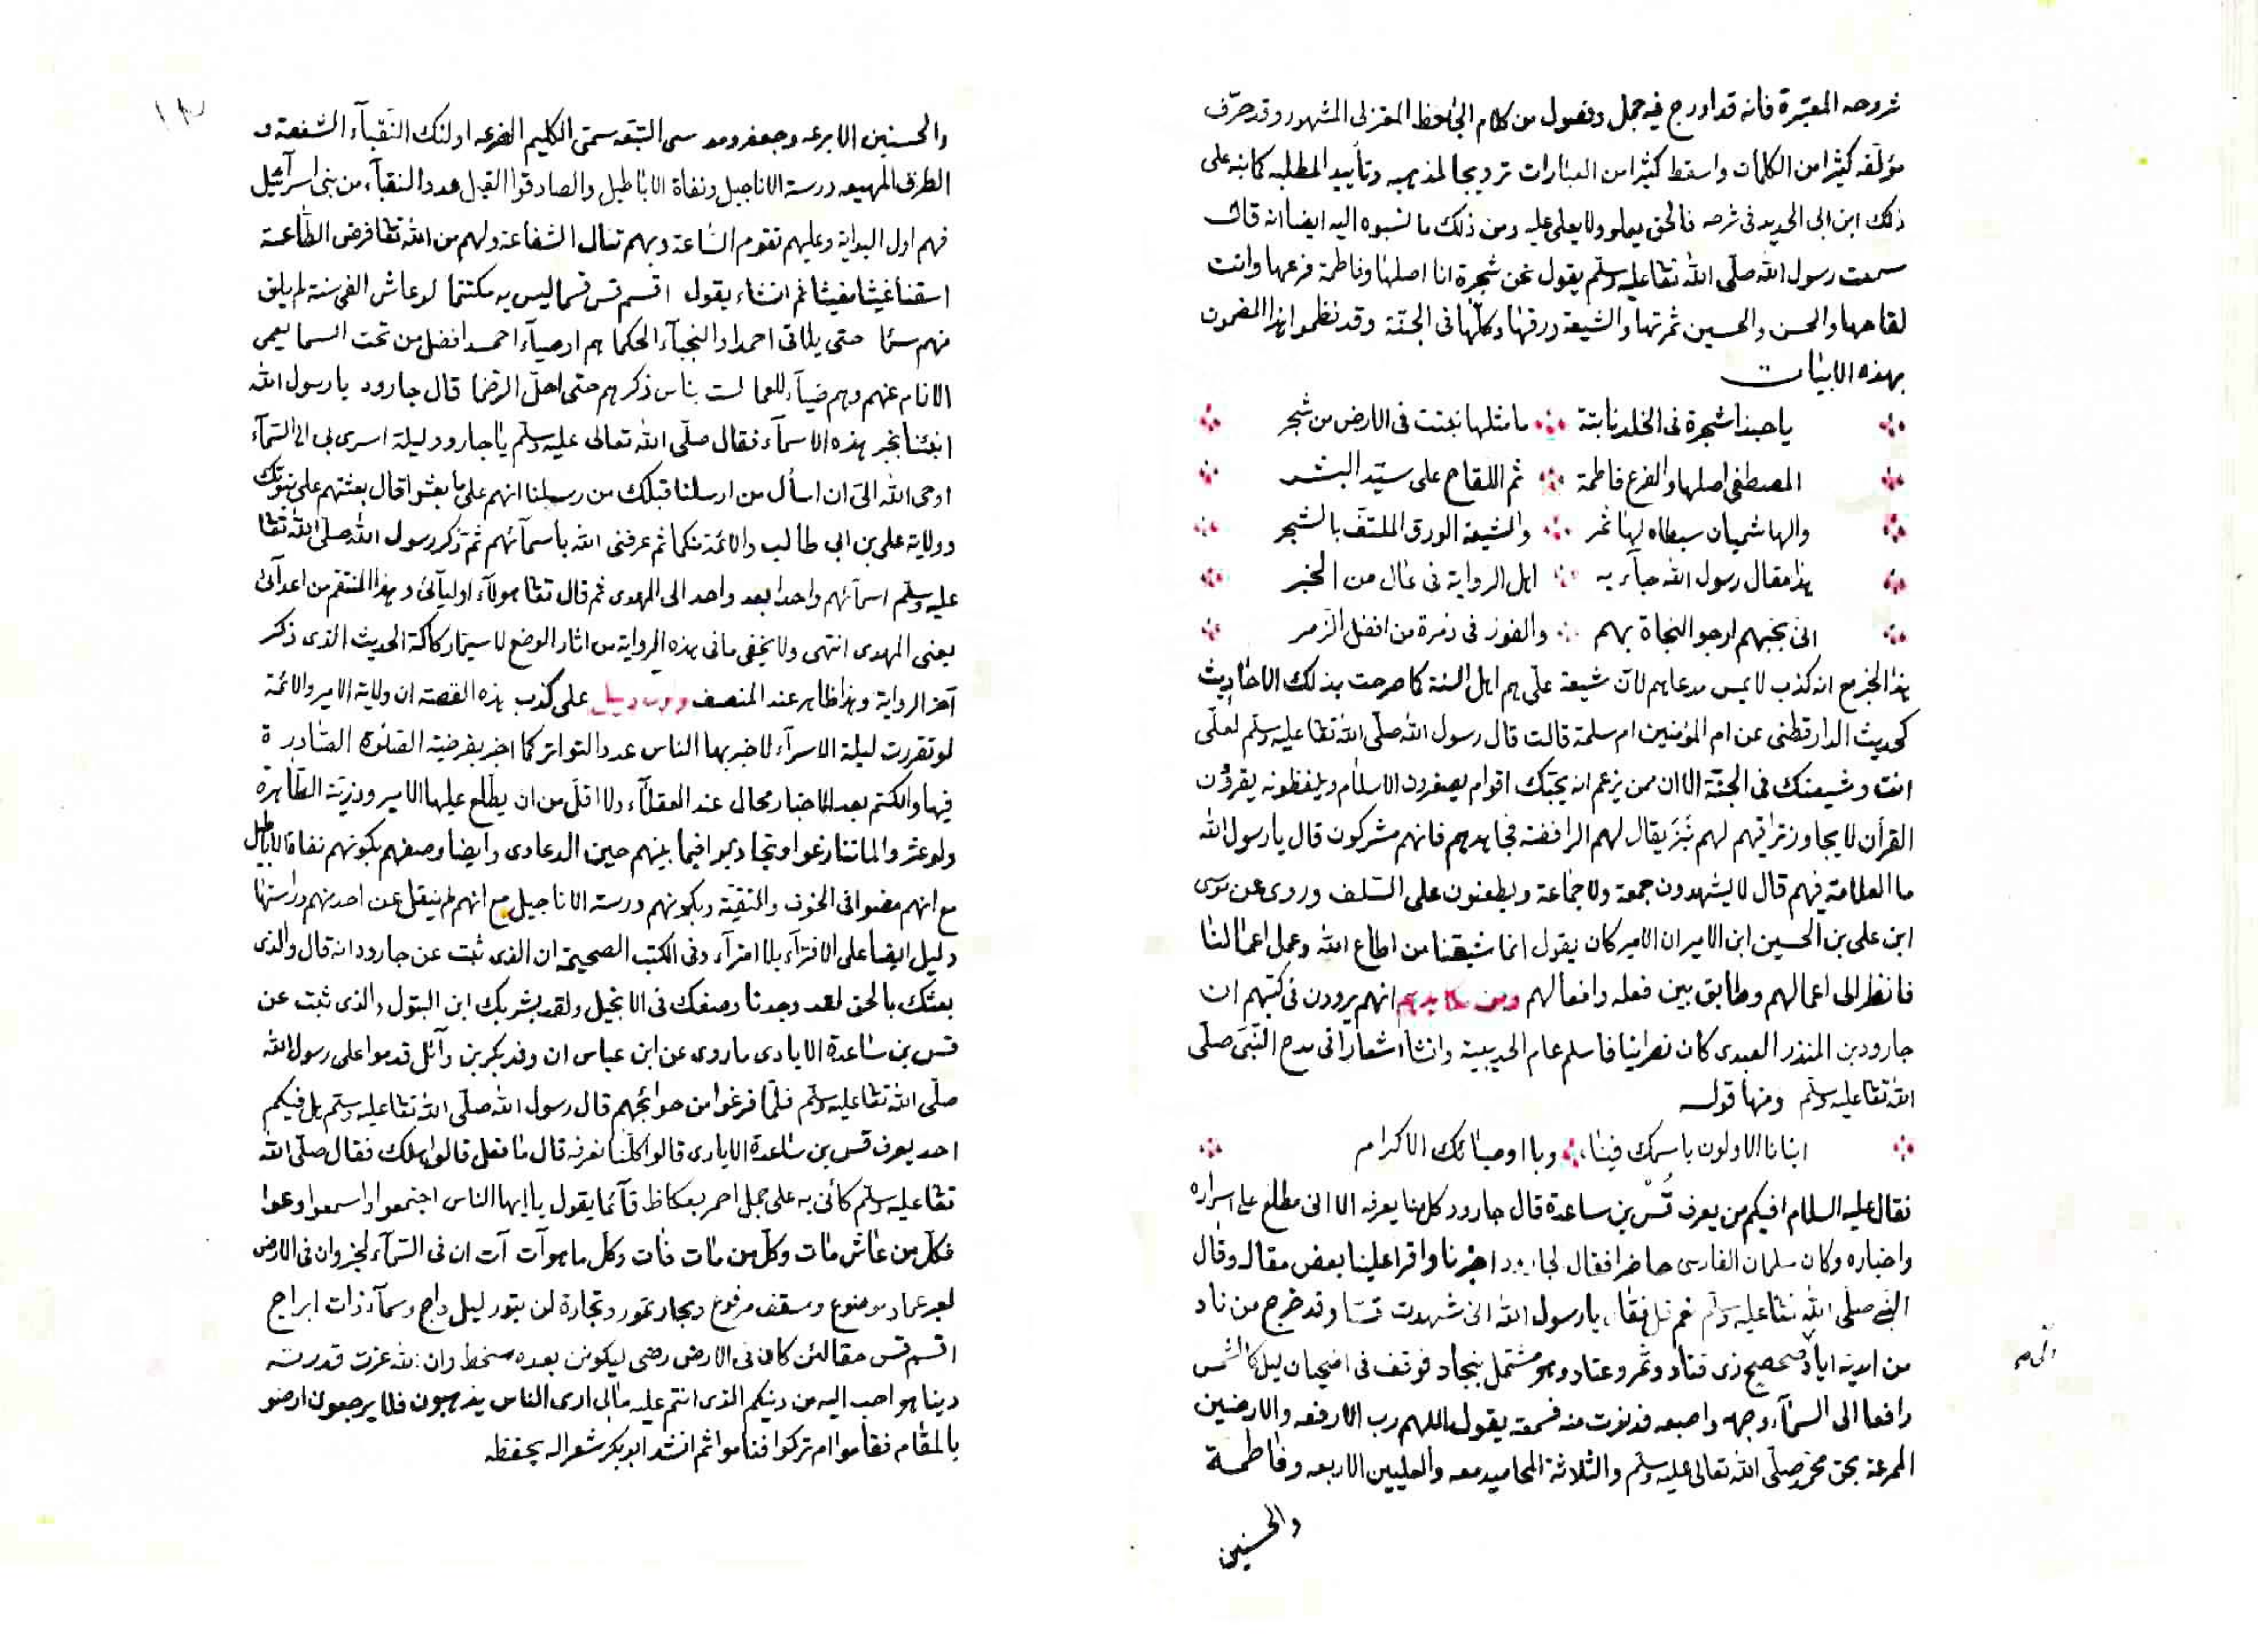 شروحه المعتبرة فانه قد ادرج فيه جمل وفصول من كلام الجاحظ المعتزلى المشهور وقد حرّف
مؤلفه كثيرا من الكلمات واسقط كثيرا من العبارات ترويجا لمذهبه وتأييد المطلبه كما نبه على
ذلك ابن ابى الحديد فى شرحه فالحق يعلو ولا يعلى عليه ومن ذلك ما نسبوه اليه ايضا انه قال
سمعت رسول الله صلّى الله تعا عليه وسلّم يقول نحن شجرة انا اصلها وفاطمة فرعها وانت
لقاحها والحسن والحسين ثمرتها والشيعة ورقها وكلّها فى الجنّة وقد نظموا هذا المضمون
بهذه الابيات
يا حبذا شجرة فى الخلد نابتة ما مثلها نبتت فى الارض من شجر
المصطفى اصلها والفرع فاطمة ثم اللقاح على سيّد البشر
والهاشميان سبطاه لها ثمر والشيعة الورق الملتفّ بالشجر
هذا مقال رسول الله جآء به اهل الرواية فى عال من الخبر
انى بحبهم ارجو النجاة بهم والفوز فى زمرة من افضل الزمر
هذا الخبر مع انه كذب لا يمس مدعاهم لانّ شيعة علّى هم اهل السنة كما صرحت بذلك الاحاديث
كحديث الدارقطنى عن ام المؤمنين ام سلمة قالت قال رسول الله صلّى الله تعا عليه وسلّم لعلّى
انت وشيعتك فى الجنّة الا ان ممن يزعم انه يحبّك اقوام يصغرون الاسلام ويلفظونه يقرؤن
القرأن لا يجاوز تراقيهم لهم نَبَز يقال لهم الرافضة فجاهدهم فانهم مشركون قال يا رسول الله
ما العلامة فيهم قال لا يشهدون جمعة ولا جماعة ويطعنون على السّلف وروى عن موسى
ابن على بن الحسين ابن الامير ان الامير كان يقول انما شيعتنا من اطاع الله وعمل اعمالنا
فانظر الى اعمالهم وطابق بين فعله وافعالهم ومن مكايدهم انهم يروون فى كتبهم ان
جارود بن المنذر العبدى كان نصرانيا فاسلم عام الحديبية وانشأ اشعارا فى مدح النّبىّ صلّى
الله تعا عليه وسلّم ومنها قوله
انبانا الاولون باسمك فينا، وبا اوصيائك الاكرام
فقال عليه السلام افيكم من يعرف قُسّ بن ساعدة قال جارود كل منا يعرفه الا انى مطلع على اسراره
واخباره وكان سلمان الفارسى حاضرا فقال لجارود اخبرنا واقرا علينا بعض مقاله وقال
النبى صلّى الله تعا عليه وسلّم نعم قل فقال يا رسول الله انى شهدت قسّا وقد خرج من ناد
من اندية اياد صحصح ذى قتاد وثمر وعتاد وهو مشتمل بنجاد فوقف فى اضحيان ليل كالشمس
رافعا الى السمآء وجهه واصبعه فدنوت منه فسمعته يقول اللهم رب الارفعه والارضين
الممرعة بحق محمّد صلّى الله تعالى عليه وسلّم والثلاثة المحاميد معه والعليين الاربعه وفاطمة
والحسنين
والحسنين الابرعه وجعفر وموسى التبعه سمىّ الكليم الضرعه اولئك النقبآء الشفعة و
الطرق المهيعه درسة الاناجيل ونفاة الاباطيل والصادقوا القيل عدد النقبآء من بنى اسرآئيل
فهم اول البداية وعليهم تقوم السّاعة وبهم تنال الشفاعة ولهم من الله تعا فرض الطّاعة
اسقنا غيثا مغيثا ثم انشاء يقول اقسم قس قسما ليس به مكتتما لو عاش الفى سنة لم يلق
منهم سئما حتى يلاقى احمدا والنجبآء الحكما هم اوصيآء احمد افضل من تحت السما يعمى
الانام عنهم وهم ضيآء للعما لست بناس ذكرهم حتى احلّ الرّضما قال جارود يا رسول الله
انبئنا بخبر هذه الاسمآء فقال صلّى الله تعالى عليه وسلّم يا جارود ليلة اسرى بى الى السّمآء
اوحى الله الىّ ان اسأل من ارسلنا قبلك من رسلنا انهم على ما بعثوا قال بعثتهم على نبوّتك
وولاية على بن ابى طالب والائمة منكما ثم عرفنى الله باسمآئهم ثم ذكر رسول الله صلّى الله تعا
عليه وسلّم اسمآئهم واحدا بعد واحد الى المهدى ثم قال تعا هولآء اوليآئى وهذا المنتقم من اعدآئى
يعنى المهدى انتهى ولا يخفى ما فى هذه الرواية من اثار الوضع لا سيما ركاكة الحديث الذى ذكر
آخر الرواية وهذا ظاهر عند المنصف على كذب هذه القصة ان ولاية الامير والائمة
لو تقررت ليلة الاسرآء لاخبر بها الناس عدد التواتر كما اخبر بفرضية الصّلوة الصّادرة
فيها والكتم بعد الاخبار محال عند العقلآء ولا اقلّ من ان يطّلع عليها الامير وذريّته الطّاهرة
ولو عثروا لما تنازعوا وتجاذبوا فيما بينهم حين الدعاوى وايضا وصفهم بكونهم نفاة الاباطيل
مع انهم مضوا فى الخوف والتقيّة وبكونهم درسة الاناجيل مع انهم لم ينقل عن احد منهم دراستها
دليل ايضا على الافترآء بلا امترآء وفى الكتب الصحيحة ان الذى ثبت عن جارود انه قال والذى
بعثك بالحق لقد وجدنا وصفك فى الانجيل ولقد بشر بك ابن البتول والذى ثبت عن
قس بن ساعدة الايادى ما روى عن ابن عباس ان وفد بكر بن وآئل قدموا على رسول الله
صلّى الله تعا عليه وسلّم فلمّا فرغوا من حوائجهم قال رسول الله صلّى الله تعا عليه وسلّم هل فيكم
احد يعرف قس بن ساعدة الايادى قالوا كلّنا نعرفه قال ما فعل قالوا هلك فقال صلّى الله
تعا عليه وسلّم كأنى به على جمل احمر بعكاظ قآئما يقول يا ايها الناس اجتمعوا واسمعوا وعوا
فكلّ من عاش مات وكلّ من مات فات وكلّ ما هو آت آت ان فى السّمآء لخبر وان فى الارض
لعبر عماد موضوع وسقف مرفوع وبحار تمور وتجارة لن تبور ليل داج وسمآء ذات ابراج
اقسم قس حقا لئن كان فى الارض رضى ليكونن بعده سخط وان لله عزت قدرته
دينا هو احب اليه من دينكم الذى انتم عليه مالى ارى الناس يذهبون فلا يرجعون ارضوا
بالمقام فقاموا ام تركوا فناموا ثم انشد ابو بكر شعرا له يحفظه